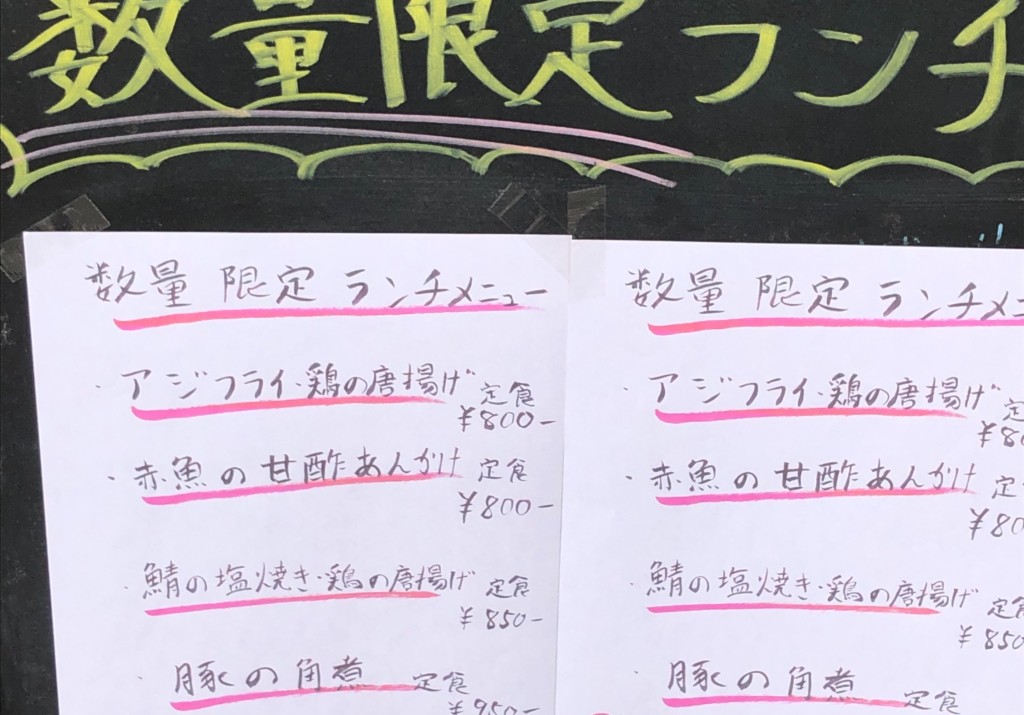 数量限定ランチ
数量 限定 ランチメニュー
・アジフライ・鶏の唐揚げ 定食
¥800-
・赤魚の甘酢あんかけ 定食
¥800-
・鯖の塩焼き・鶏の唐揚げ 定食
¥850-
豚の角煮 定食
¥950-
数量 限定 ランチメニ
・アジフライ・鶏の唐揚げ 定
¥80
・赤魚の甘酢あんかけ 定
¥80
・鯖の塩焼き・鶏の唐揚げ 定食
¥850
・豚の角煮 定食